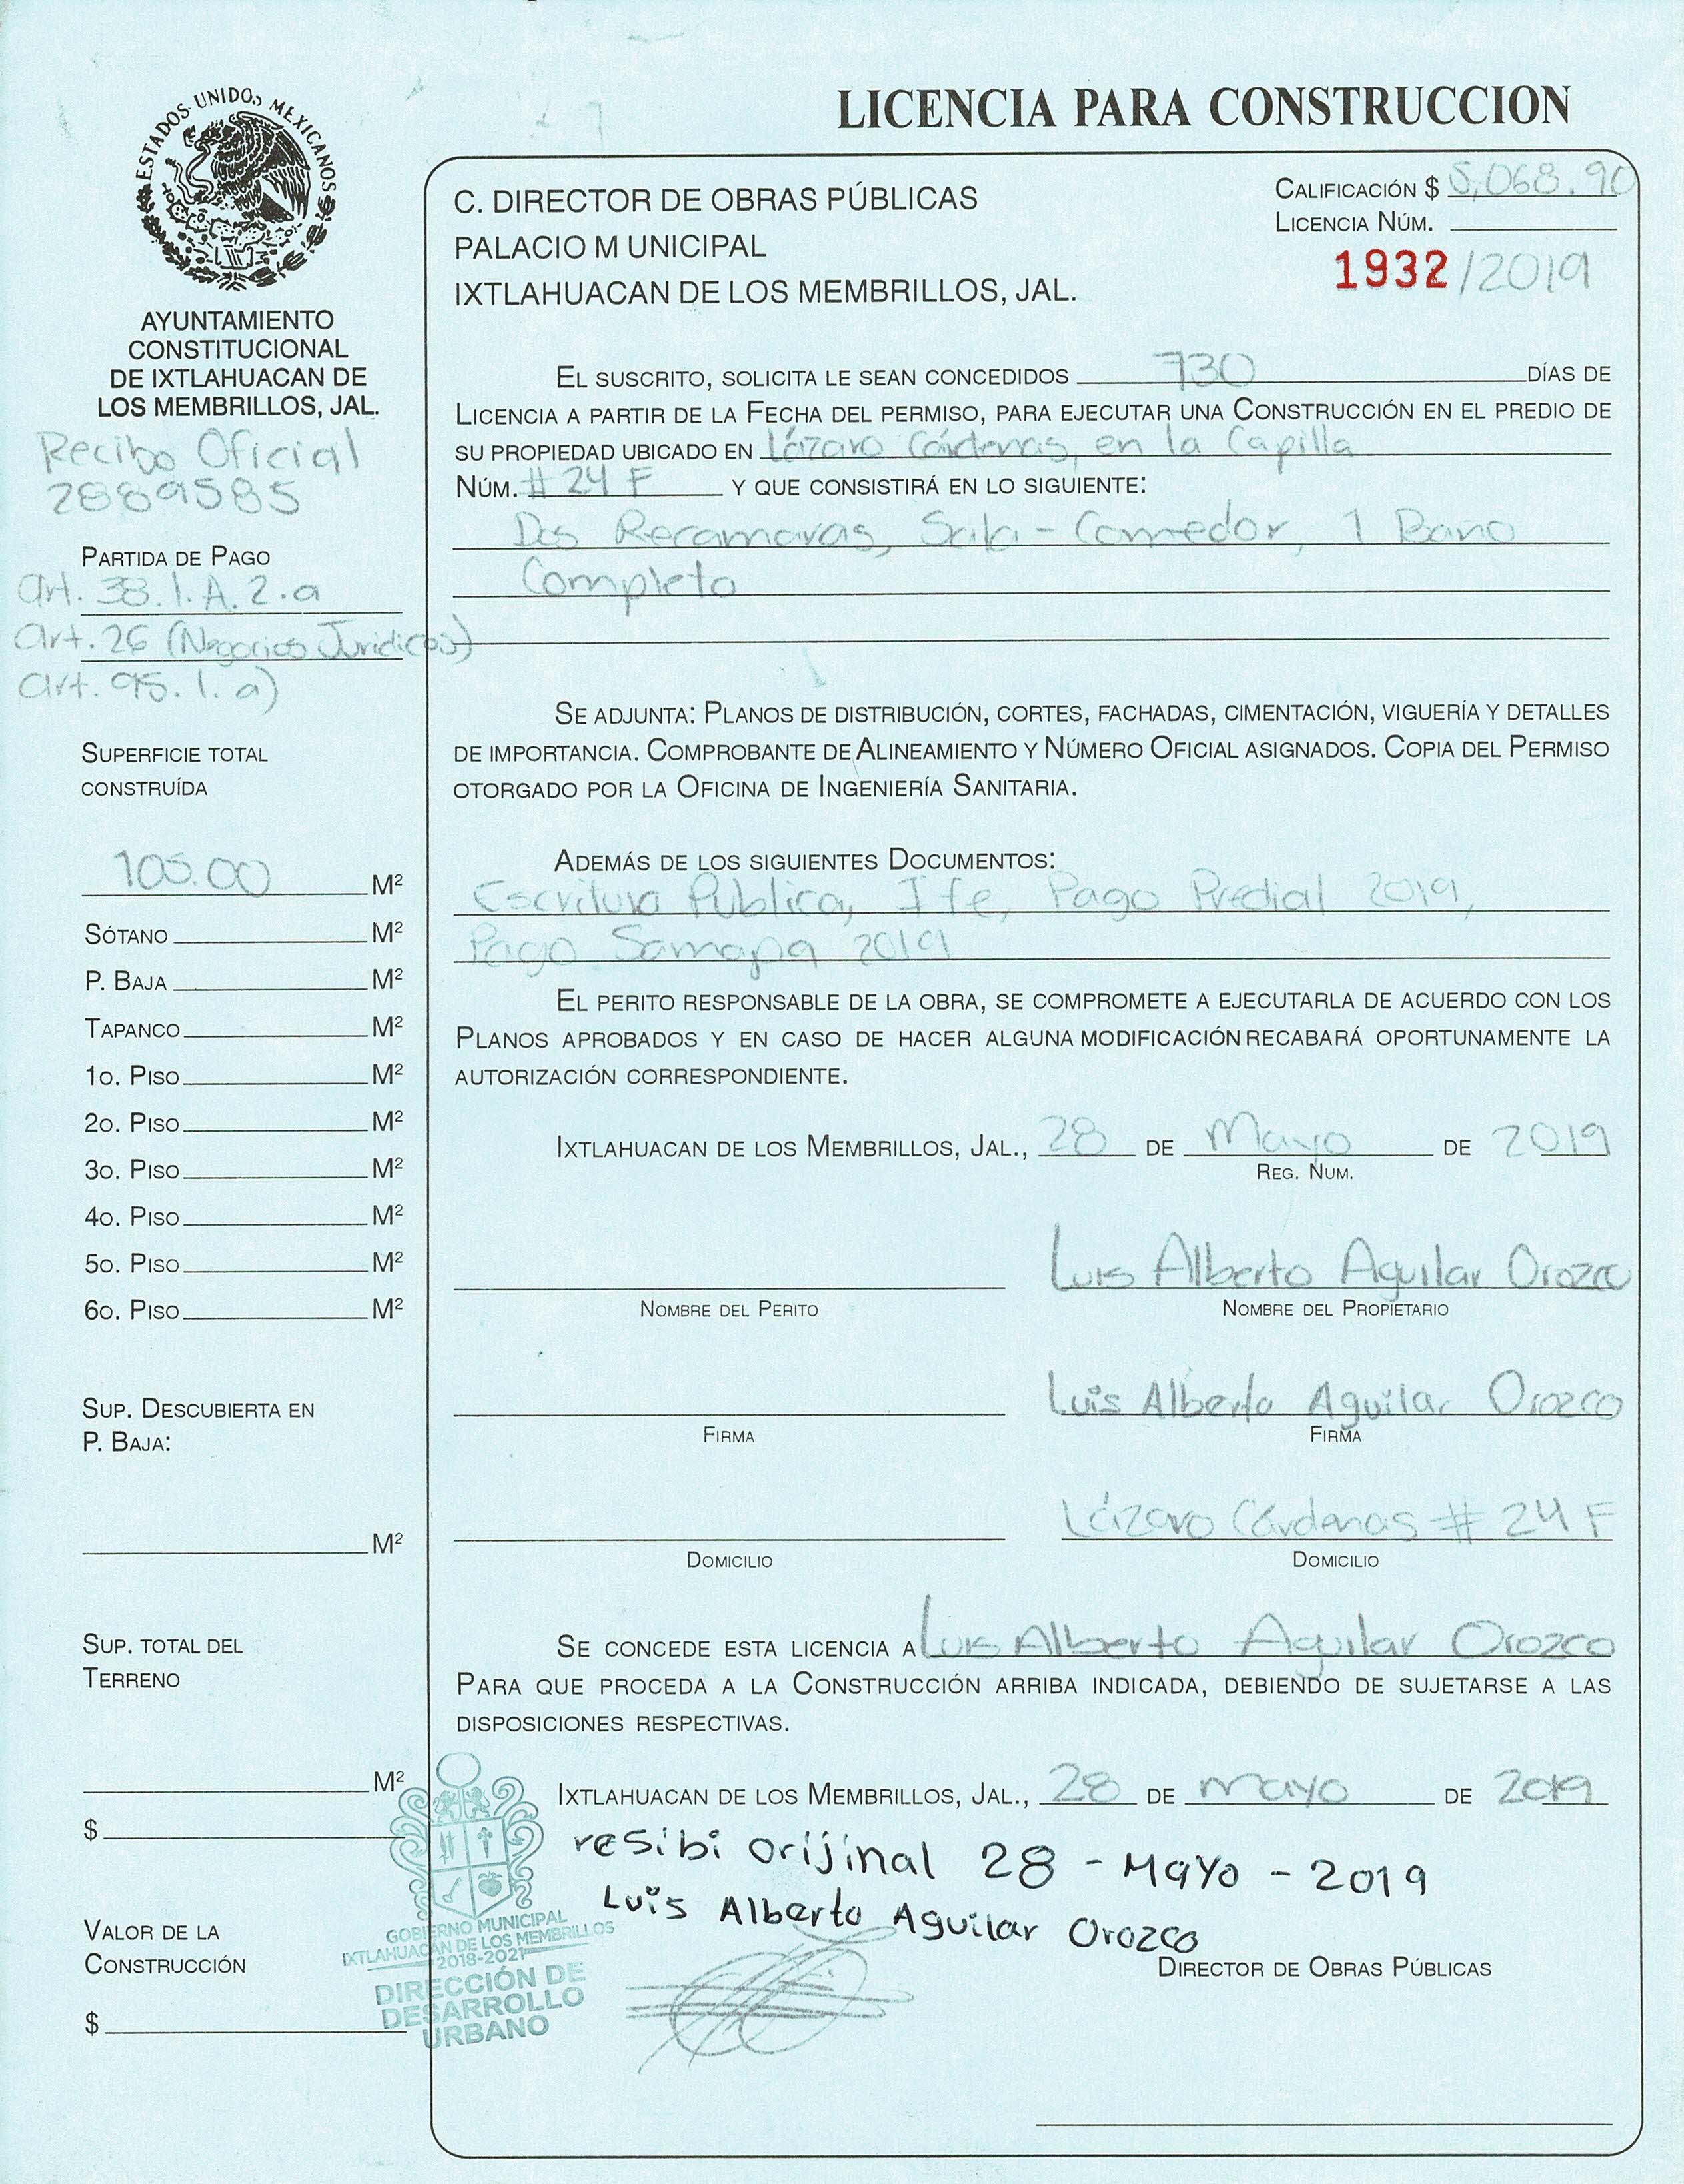 LICENCIA PARA CONSTRUCCION
ESTADOS UNIDOS MEXICANOS
AYUNTAMIENTO
CONSTITUCIONAL
DE IXTLAHUACAN DE
LOS MEMBRILLOS, JAL.
Recibo Oficial
2889585
PARTIDA DE PAGO
Art. 38.1.A.2.a
Art. 26 (Negocios Juridicos)
Art. 95.1. a)
SUPERFICIE TOTAL
CONSTRUÍDA
105.00 M²
SÓTANO M²
P. BAJA M²
TAPANCO M²
1O. PISO M²
2O. PISO M²
3O. PISO M²
4O. PISO M²
5O. PISO M²
6O. PISO M²
SUP. DESCUBIERTA EN
P. BAJA:
M²
SUP. TOTAL DEL
TERRENO
M²
$
VALOR DE LA
CONSTRUCCIÓN
$
C. DIRECTOR DE OBRAS PÚBLICAS
PALACIO M UNICIPAL
IXTLAHUACAN DE LOS MEMBRILLOS, JAL.
CALIFICACIÓN $ 5,068.90
LICENCIA NÚM.
1932/2019
EL SUSCRITO, SOLICITA LE SEAN CONCEDIDOS 730 DÍAS DE
LICENCIA A PARTIR DE LA FECHA DEL PERMISO, PARA EJECUTAR UNA CONSTRUCCIÓN EN EL PREDIO DE
SU PROPIEDAD UBICADO EN Lázaro Cárdenas, en la Capilla
NÚM. # 24 F Y QUE CONSISTIRÁ EN LO SIGUIENTE:
Dos Recamaras, Sala-Comedor, 1 Baño
Completo
SE ADJUNTA: PLANOS DE DISTRIBUCIÓN, CORTES, FACHADAS, CIMENTACIÓN, VIGUERÍA Y DETALLES
DE IMPORTANCIA. COMPROBANTE DE ALINEAMIENTO Y NÚMERO OFICIAL ASIGNADOS. COPIA DEL PERMISO
OTORGADO POR LA OFICINA DE INGENIERÍA SANITARIA.
ADEMÁS DE LOS SIGUIENTES DOCUMENTOS:
Escritura Publica, Ife, Pago Predial 2019,
Pago Samapa 2019
EL PERITO RESPONSABLE DE LA OBRA, SE COMPROMETE A EJECUTARLA DE ACUERDO CON LOS
PLANOS APROBADOS Y EN CASO DE HACER ALGUNA MODIFICACIÓN RECABARÁ OPORTUNAMENTE LA
AUTORIZACIÓN CORRESPONDIENTE.
IXTLAHUACAN DE LOS MEMBRILLOS, JAL., 28 DE Mayo DE 2019
REG. NUM.
Luis Alberto Aguilar Orozco
NOMBRE DEL PERITO NOMBRE DEL PROPIETARIO
Luis Alberto Aguilar Orozco
FIRMA FIRMA
Lázaro Cárdenas # 24 F
DOMICILIO DOMICILIO
SE CONCEDE ESTA LICENCIA A Luis Alberto Aguilar Orozco
PARA QUE PROCEDA A LA CONSTRUCCIÓN ARRIBA INDICADA, DEBIENDO DE SUJETARSE A LAS
DISPOSICIONES RESPECTIVAS.
IXTLAHUACAN DE LOS MEMBRILLOS, JAL., 28 DE mayo DE 2019
resibi orijinal 28 - MAYO - 2019
Luis Alberto Aguilar Orozco
DIRECTOR DE OBRAS PÚBLICAS
GOBIERNO MUNICIPAL
IXTLAHUACÁN DE LOS MEMBRILLOS
2018-2021
DIRECCIÓN DE
DESARROLLO
URBANO